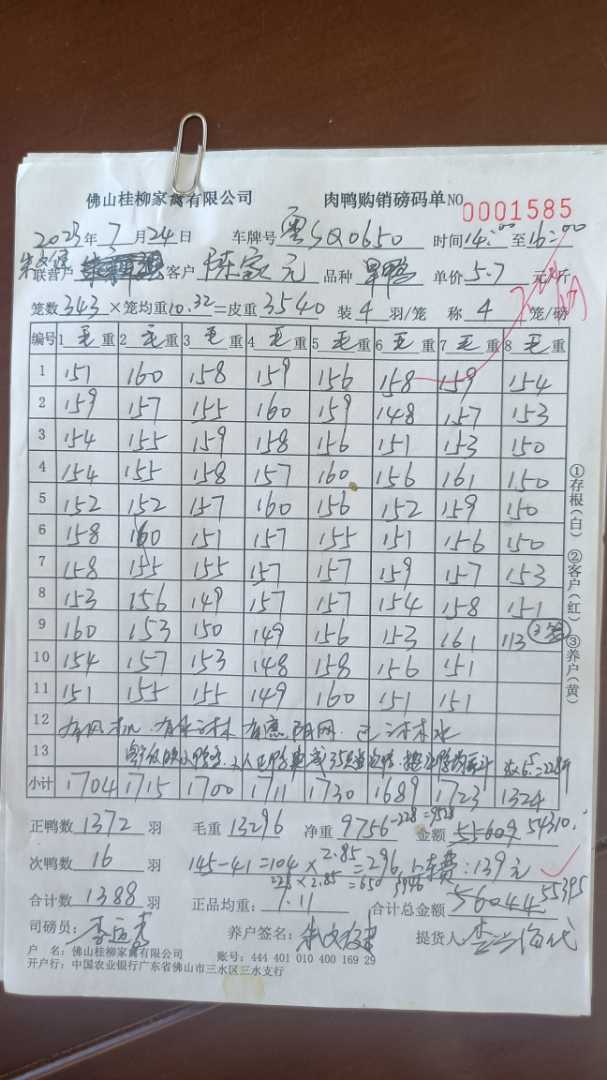 佛山桂柳家禽有限公司 肉鸭购销磅码单 NO 0001585
2023年7月24日 车牌号 粤SQ0650 时间14:00至16:00
联营户 客户 陈家元 品种 旱鸭 单价5.7元/斤
笼数343×笼均重10.32=皮重3540 装4羽/笼 称4笼/磅
编号 1毛重 2毛重 3毛重 4毛重 5毛重 6毛重 7毛重 8毛重
1 151 160 158 159 156 158 159 154
2 159 157 155 160 159 148 157 153
3 154 155 159 158 156 151 153 150
4 154 155 158 157 160 156 161 150
5 152 152 157 160 156 152 159 150
6 158 160 151 157 155 151 156 150
7 158 155 155 157 157 159 157 153
8 153 156 149 157 157 154 158 151
9 160 153 150 149 156 153 161 113
10 154 157 153 148 158 156 151
11 151 155 155 149 160 151 151
12
13
小计 1704 1715 1700 1711 1730 1689 1723 1324
正鸭数1372羽 毛重13296 净重9756-228=9528 金额55609 54310
次鸭数16羽 145-41=104×2.85=296 卡费:139元
228×2.85=650
合计数1388羽 正品均重:7.11 合计总金额56044 55395
司磅员: 养户签名: 提货人
户 名:佛山桂柳家禽有限公司 账号:444 401 010 400 169 29
开户行:中国农业银行广东省佛山市三水区三水支行
①存根(白) ②客户(红) ③养户(黄)